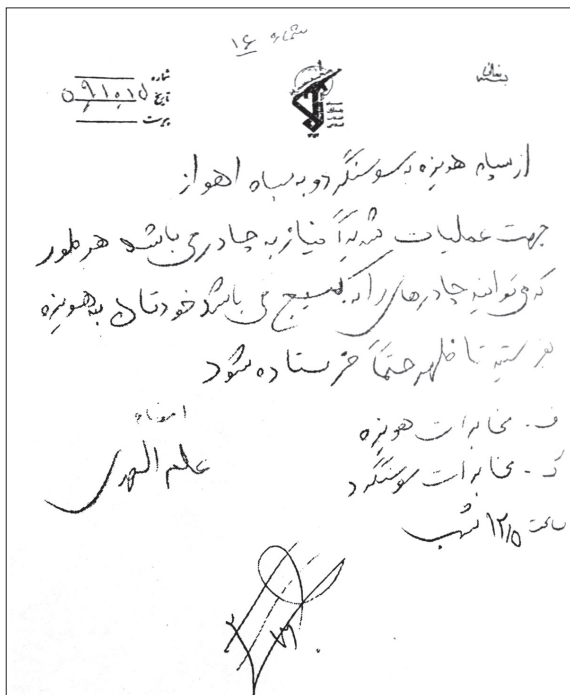 شماره ۱۶
بسمه تعالی
شماره
تاریخ ۵۹/۱۰/۱۵
پیوست
از سپاه هویزه به سوسنگرد و به سپاه اهواز
جهت عملیات شدیداً نیاز به چادر می باشد هر طور
که می توانید چادرهای را که بسیج می باشد خودتان به هویزه
بفرستید تا ظهر حتماً فرستاده شود
امضاء
علم الهدی
ف - مخابرات هویزه
گ - مخابرات سوسنگرد
ساعت ۱۲/۵ شب